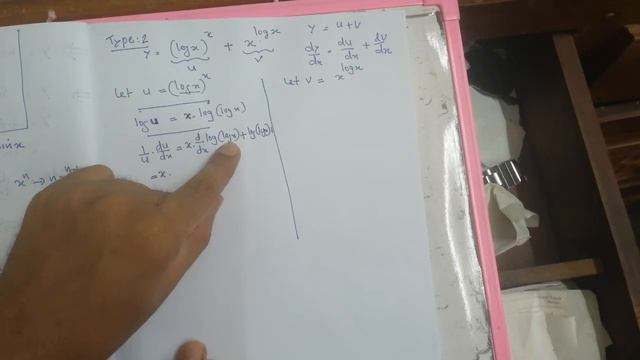 Type:2
y = (logx)^x + x^logx
u v
y = u+v
dy/dx = du/dx + dv/dx
let u = (logx)^x
logu = x.log(logx)
1/u . du/dx = x. d/dx log(logx) + log(logx).
= x.
let v = x^logx
x^n → n